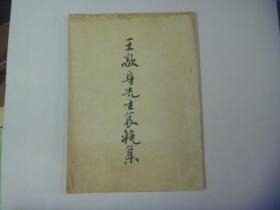 王敬身先生哀挽集